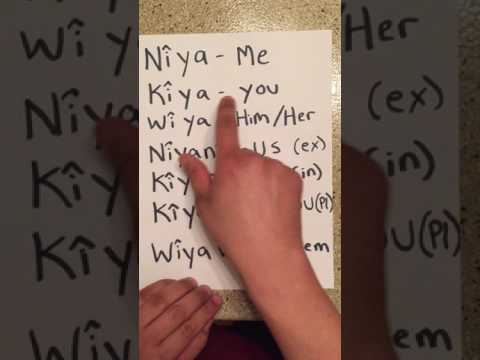 Nîya - Me
Kîya - you
Wîya Him/Her
Nîyan US (ex)
Kîy (in)
Kîy U(Pl)
Wîya em